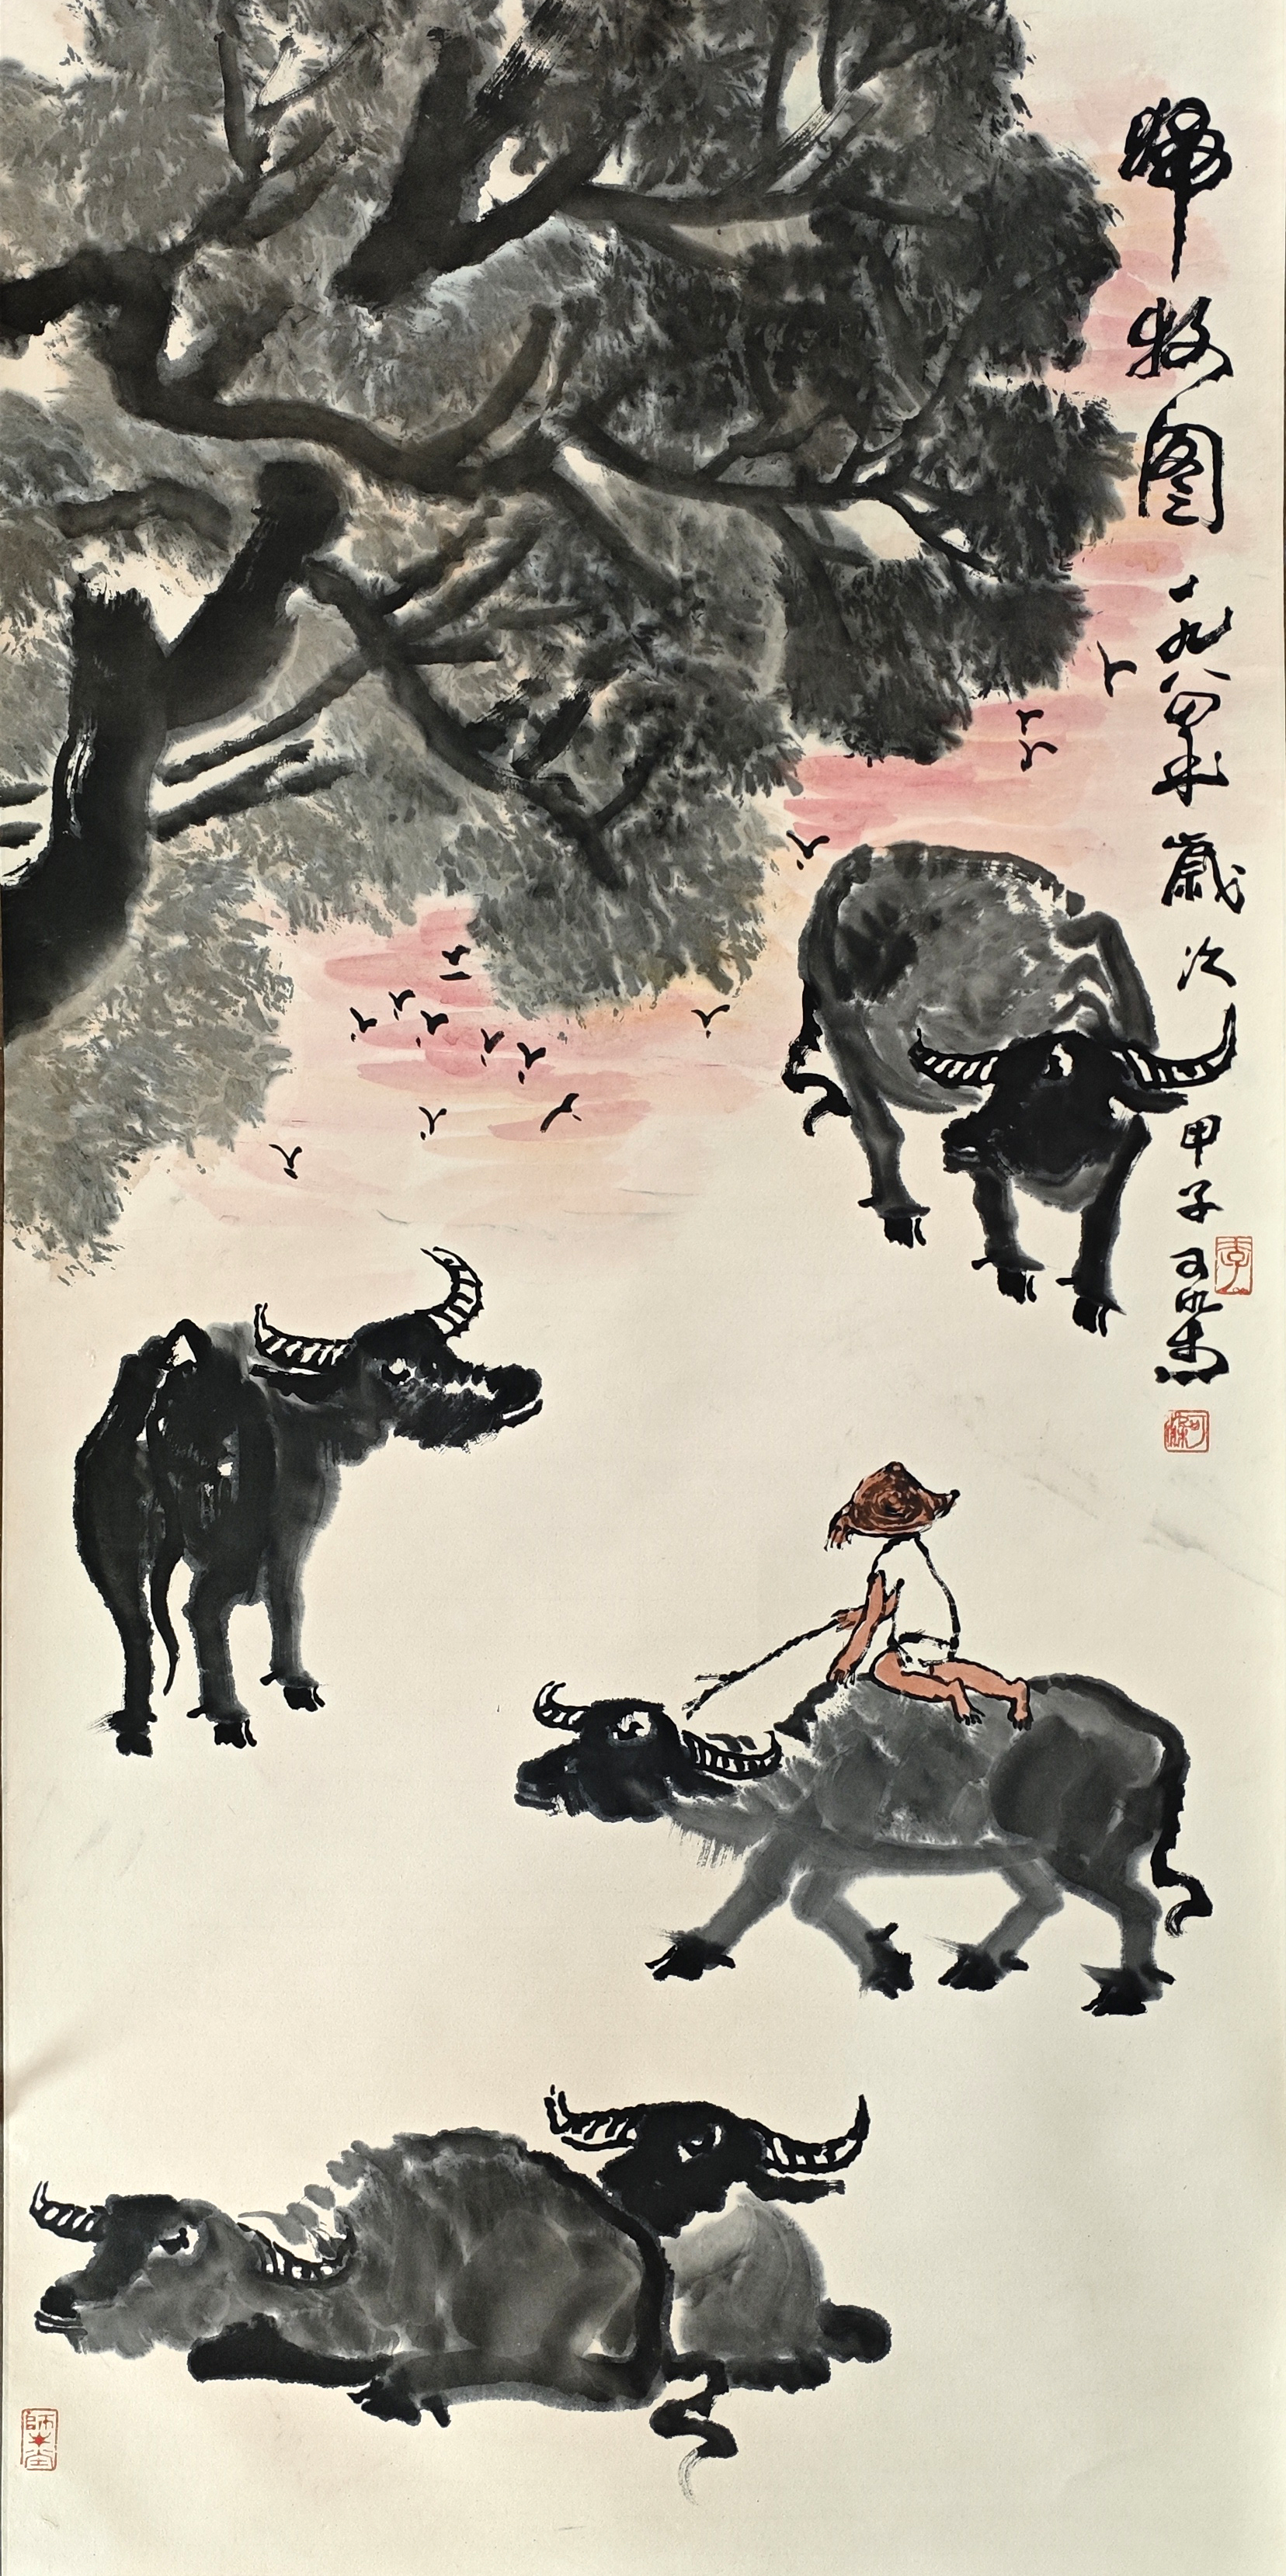 歸牧图 一九八四年 歲次甲子 可染
李
可染
師牛堂